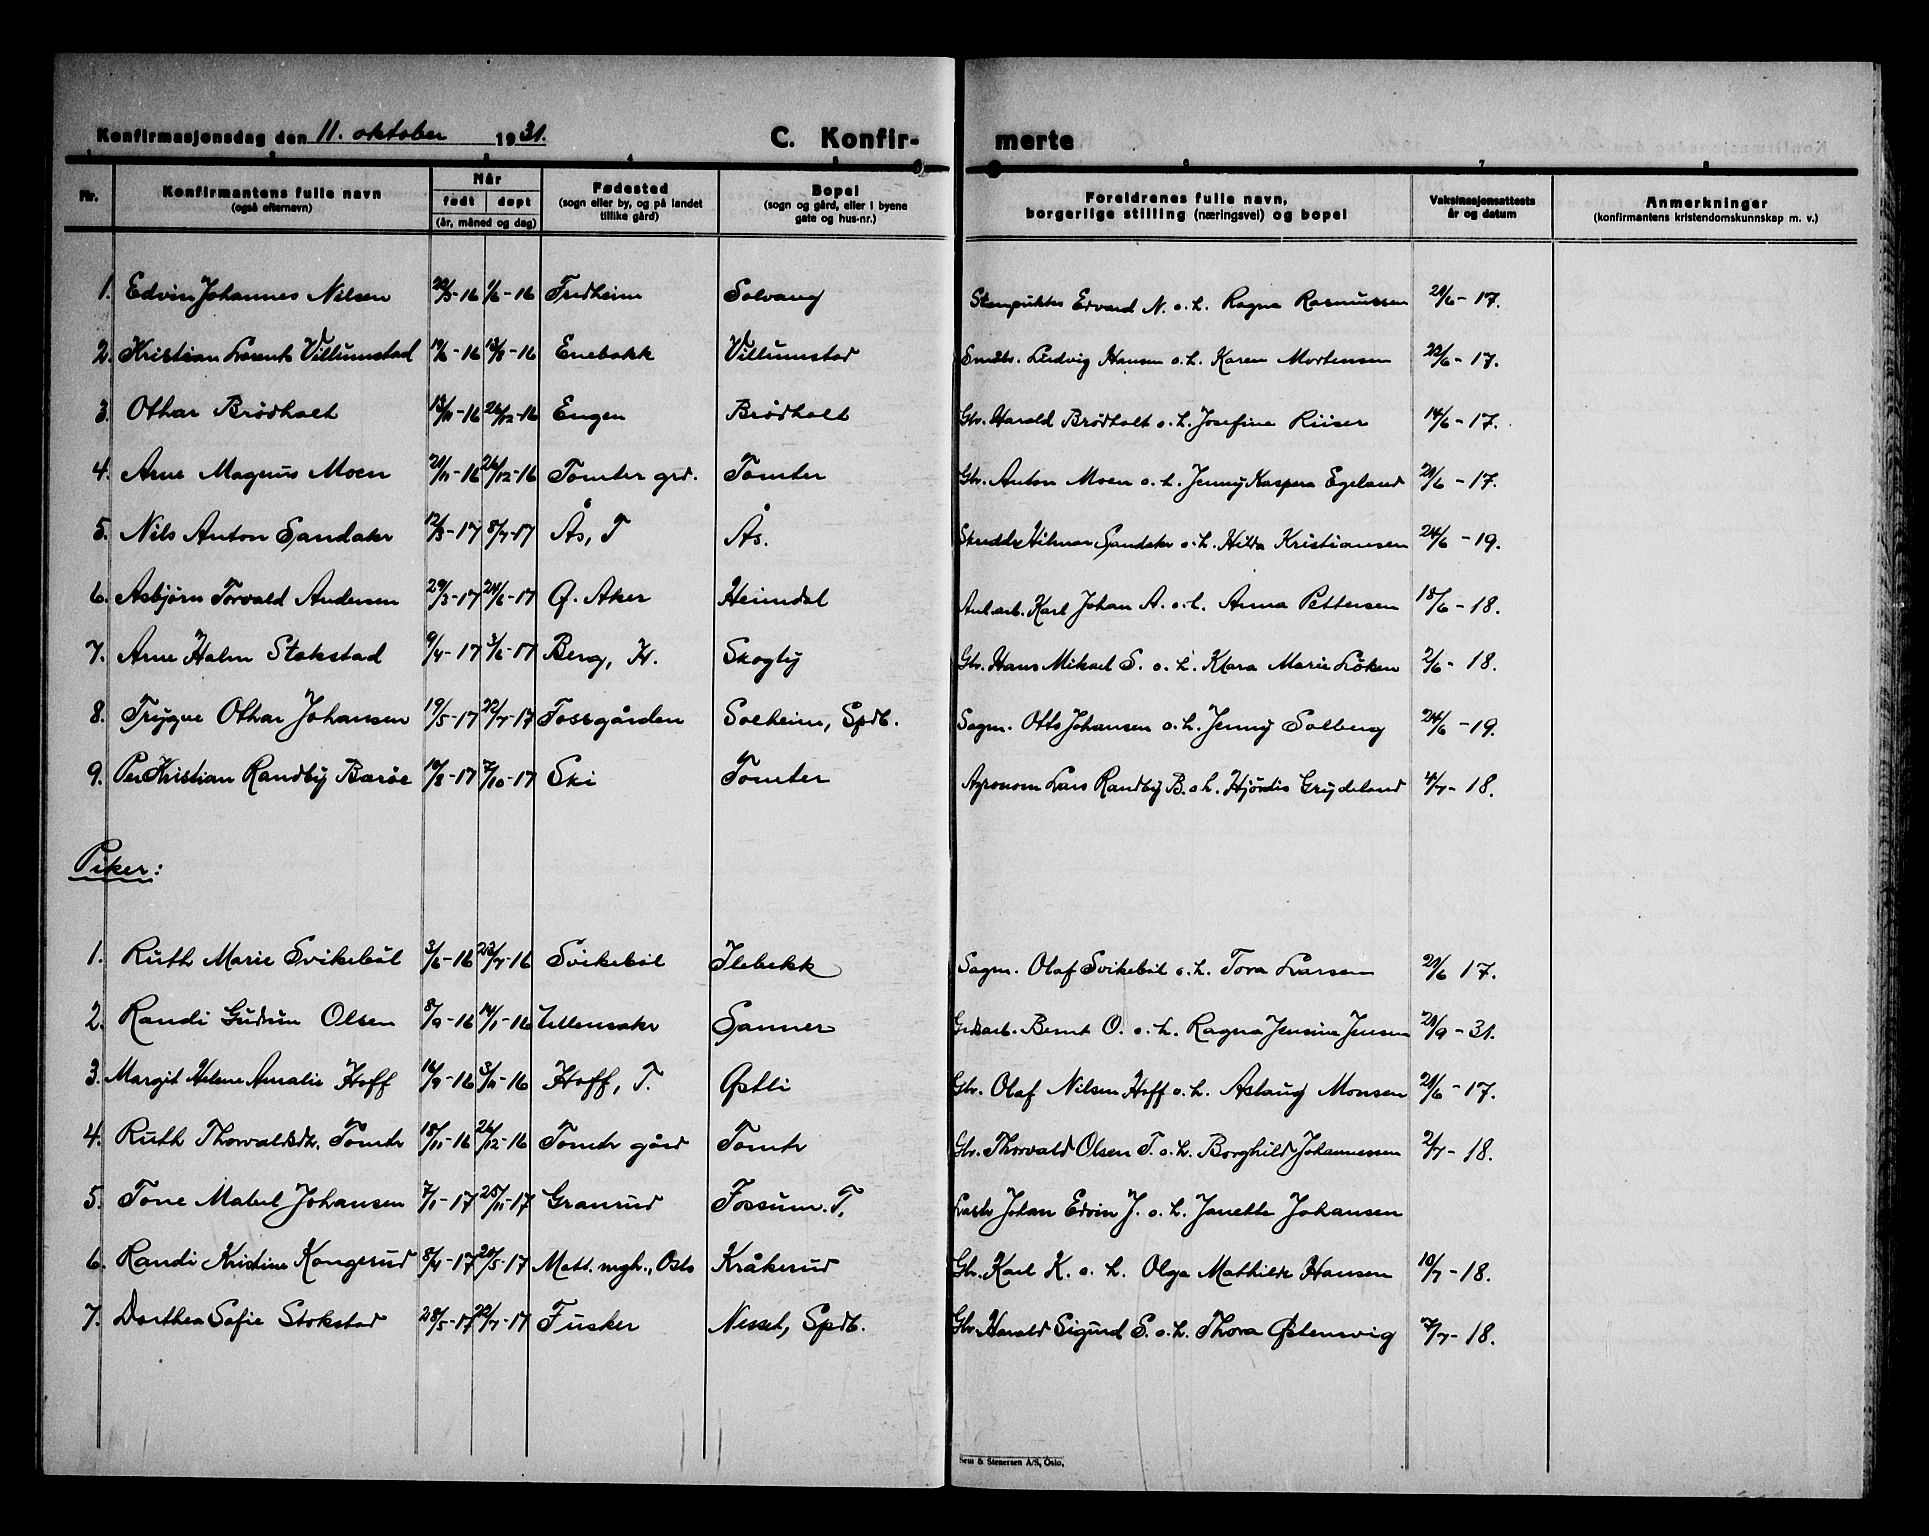 Konfirmasjonsdag den 11. oktober 1931. C. Konfir- merte
1 2 3 4 5 6 7 8
Nr. Konfirmantens fulle navn (også efternavn) Når født døpt (år, måned og dag) Fødested (sogn eller by, og på landet tillike gård) Bopel (sogn og gård, eller i byene gate og hus-nr.) Foreldrenes fulle navn, borgerlige stilling (næringsvei) og bopel Vaksinasjonsattests år og datum Anmerkninger (konfirmantens kristendomskunnskap m. v.)
1. Edvin Johannes Nilsen 22/5-16 1/6-16 Fredheim Solvang Edvard N. o.h. Ragna Rasmussen 20/6-17.
2. Kristian Lorents Villumstad 19/6-16 13/8-16 Enebakk Villumstad Småbr. Ludvig Hansen o.h. Karen Mortensen 22/6-17.
3. Othar Brödholt 13/11-16 26/12-16 Engen Brödholt Gbr. Harald Brödholt o.h. Josefine Riiser 14/6-17.
4. Arne Magnus Moen 21/11-16 26/12-16 Tomter grd. Tomter Gbr. Anton Moen o.h. Jenny Kaspera Egeland 20/6-17.
5. Nils Anton Sandaker 12/3-17 8/7-17 Ås, T Ås. Skredder Hilmar Sandaker o.h. Hilda Kristiansen 24/6-19.
6. Asbjørn Torvald Andersen 29/3-17 24/6-17 Ø. Aker Heimdal Anl.arb. Karl Johan A. o.h. Anna Pettersen 18/6-18.
7. Arne Holm Stokstad 9/4-17 3/6-17 Berg, Kr. Skogly Gbr. Hans Mikael S. o.h. Klara Marie Löken 2/6-18.
8. Trygve Othar Johansen 19/5-17 22/7-17 Fossgården Solheim, Spdb. Sagm. Otto Johansen o.h. Jenny Solberg 24/6-19.
9. Per Kristian Randby Barøe 10/8-17 7/10-17 Ski Tomter Agronom Lars Randby B. o.h. Hjördis Grydeland 4/7-18.
Piker:
1. Ruth Marie Svikebøl 3/6-16 23/7-16 Svikebøl Ilebekk Sagm. Olaf Svikebøl o.h. Tora Larsen 20/6 17.
2. Randi Gudrun Olsen 8/9-16 14/1-16 Ullensaker Sanner Grdsarb. Bernt O. o.h. Ragna Jensine Jensen 20/9-31.
3. Margit Helene Amalie Hoff 16/9-16 3/11-16 Hoff, T. Østli Gbr. Olaf Nilsen Hoff o.h. Aslaug Monsen 20/6-17.
4. Ruth Thorvaldsdtr. Tomter 18/11-16 26/12-16 Tomter gård Tomter Gbr. Thorvald Olsen T. o.h. Borghild Johannessen 2/7-18.
5. Tone Mabel Johansen 7/1-17 25/11-17 Granrud Fossum. T. Johan Edvin J. o.h. Janette Johansen
6. Randi Kristine Kongerud 8/4-17 20/5-17 Matt. mgh., Oslo Kråkerud Gbr. Karl K. o.h. Olga Mathilde Hansen 10/7-18.
7. Dorthea Sofie Stokstad 28/5-17 22/7-17 Fusker Nesset, Spdb. Gbr. Harald Sigurd S. o.h. Thora Østensvig 7/7-18.
Sem & Stenersen A/S, Oslo.